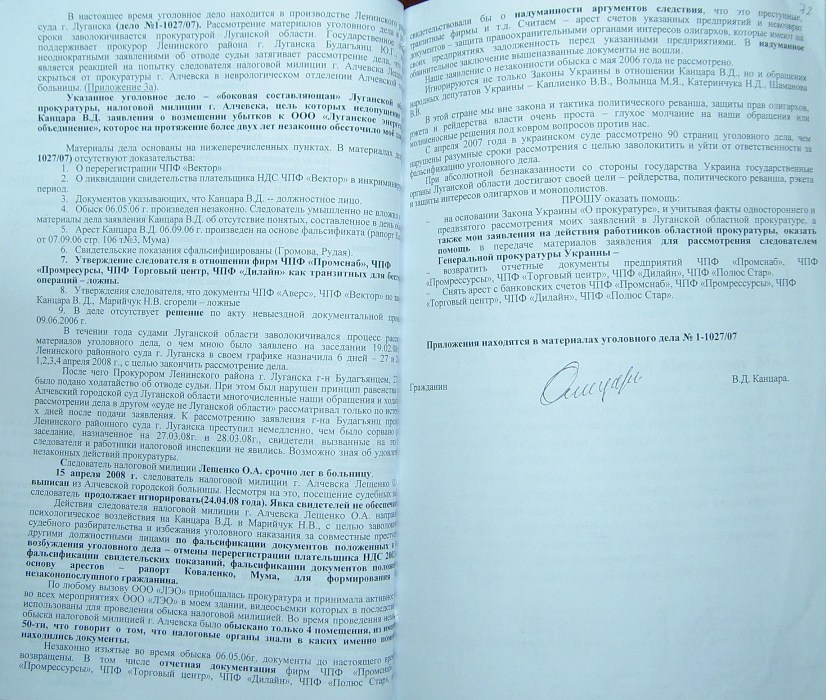 В настоящее время уголовное дело находится в производстве Ленинского
суда г. Луганска (дело №1-1027/07). Рассмотрение материалов уголовного
сроки заволокичивается прокуратурой Луганской области. Государственное
поддерживает прокурор Ленинского района г. Луганска Будагьянц Ю.Г.
неоднократными заявлениями об отводе судьи затягивает рассмотрение дела,
является реакцией на попытку следователя налоговой милиции г. Алчевска
скрыться от прокуратуры г. Алчевска в неврологическом отделении Алчевской
больницы. (Приложение 3а).
Указанное уголовное дело – «боковая составляющая» Луганской
прокуратуры, налоговой милиции г. Алчевска, цель которых
Канцара В.Д. заявления о возмещении убытков к ООО «Луганское
объединение», которое на протяжение более двух лет незаконно обесточило
Материалы дела основаны на нижеперечисленных пунктах. В материалах
1027/07) отсутствуют доказательства:
1. О перерегистрации ЧПФ «Вектор»
2. О ликвидации свидетельства плательщика НДС ЧПФ «Вектор» в
период.
3. Документы указывающих, что Канцара В.Д. -- должностное лицо.
4. Обыск 06.05.06 г. произведен незаконно. Следователь умышленно не
материалы дела заявления Канцара В.Д. об отсутствие понятых, составленное в день
5. Арест Канцара В.Д. 06.09.06 г. произведен на основе фальсификации
от 07.09.06 стр. 106 т№3, Мума)
6. Свидетельские показания сфальсифицированы (Громова, Рудая).
7. Утверждение следователя в отношении фирм ЧПФ «Промснаб», ЧПФ
«Промресурсы, ЧПФ Торговый центр, ЧПФ «Дилайн» как транзитных для
операций – ложны.
8. Утверждения следователя, что документы ЧПФ «Аверс», ЧПФ «Вектор» по
Канцара В. Д., Марийчук Н.В. сгорели – ложные
9. В деле отсутствует решение по акту невыездной документальной
09.06.2006 г.
В течении года судами Луганской области заволокичивался процесс
материалов уголовного дела, о чем мною было заявлено на заседании
Ленинского районного суда г. Луганска в своем графике назначила 6 дней – 27 и
1,2,3,4 апреля 2008 г., с целью закончить рассмотрение дела.
После чего Прокурором Ленинского района г. Луганска г-н Будагьянцем,
было подано ходатайство об отводе судьи. При этом был нарушен принцип
Алчевский городской суд Луганской области многочисленные наши обращения и
рассмотрении дела в другом «суде не Луганской области» рассматривал только по
х дней после подачи заявления. К рассмотрению заявления г-на Будагьянц
Ленинского районного суда г. Луганска преступил немедленно, чем было сорвано
заседание, назначенное на 27.03.08г. и 28.03.08г., свидетели вызванные на
следователи и работники налоговой инспекции не явились. Возможно зная об
незаконных действий прокуратуры.
Следователь налоговой милиции Лещенко О.А. срочно лег в больницу.
15 апреля 2008 г. следователь налоговой милиции г. Алчевска Лещенко
выписан из Алчевской городской больницы. Несмотря на это, посещение судебных
следователь продолжает игнорировать(24.04.08 года). Явка свидетелей не
Действия следователя налоговой милиции г. Алчевска Лещенко О.А.
психологическое воздействия на Канцара В.Д. и Марийчук Н.В., с целью
судебного разбирательства и избежания уголовного наказания за совместные
другими должностными лицами по фальсификации документов положенных
возбуждения уголовного дела – отмены перерегистрации плательщика НДС
фальсификации свидетельских показаний, фальсификации документов
основу арестов – рапорт Коваленко, Мума, для формирования
незаконопослушного гражданина.
По любому вызову ООО «ЛЭО» приобщалась прокуратура и принимала
во всех мероприятиях ООО «ЛЭО» в моем здании, видеосъемки которых в
использованы для проведения обыска налоговой милицией. Во время проведения
обыска налоговой милицией г. Алчевска было обыскано только 4 помещения, из
50-ти, что говорит о том, что налоговые органы знали в каких именно
находились документы.
Незаконно изъятые во время обыска 06.05.06г. документы до настоящего
возвращены. В том числе отчетная документация фирм ЧПФ
«Промрессурсы», ЧПФ «Торговый центр», ЧПФ «Дилайн», ЧПФ «Полюс
72
свидетельствовали бы о надуманности аргументов следствия, что это
транзитные фирмы и т.д. Считаем – арест счетов указанных предприятий и
документов – защита правоохранительными органами интересов олигархов, которые имеют
перед указанными предприятиями. В надуманное
обвинительное заключение вышеназванные документы не вошли.
Наше заявление о незаконности обыска с мая 2006 года не рассмотрено.
Игнорируются не только Законы Украины в отношении Канцара В.Д., но и обращения
народных депутатов Украины – Каплиенко В.В., Волынца М.Я., Катеринчука Н.Д., Шаманова
В.В.
В этой стране мы вне закона и тактика политического реванша, защиты прав олигархов,
рэкета и рейдерства власти очень проста – глухое молчание на наши обращения или
молниеносные решения под ковром вопросов против нас.
С апреля 2007 года в украинском суде рассмотрено 90 страниц уголовного дела, чем
нарушены разумные сроки рассмотрения с целью заволокитить и уйти от ответственности за
фальсификацию уголовного дела.
При абсолютной безнаказанности со стороны государства Украина государственные
органы Луганской области достигают своей цели – рейдерства, политического реванша, рэкета
и защиты интересов олигархов и монополистов.
ПРОШУ оказать помощь:
– на основании Закона Украины «О прокуратуре», и учитывая факты одностороннего и
предвзятого рассмотрения моих заявлений в Луганской областной прокуратуре, а
также мои заявления на действия работников областной прокуратуры, оказать
помощь в передаче материалов заявления для рассмотрения следователем
Генеральной прокуратуры Украины –
– возвратить отчетные документы предприятий ЧПФ «Промснаб», ЧПФ
«Промрессурсы», ЧПФ «Торговый центр», ЧПФ «Дилайн», ЧПФ «Полюс Стар».
– Снять арест с банковских счетов ЧПФ «Промснаб», ЧПФ «Промрессурсы», ЧПФ
«Торговый центр», ЧПФ «Дилайн», ЧПФ «Полюс Стар».
Приложения находятся в материалах уголовного дела № 1-1027/07
Гражданин
В.Д. Канцара.